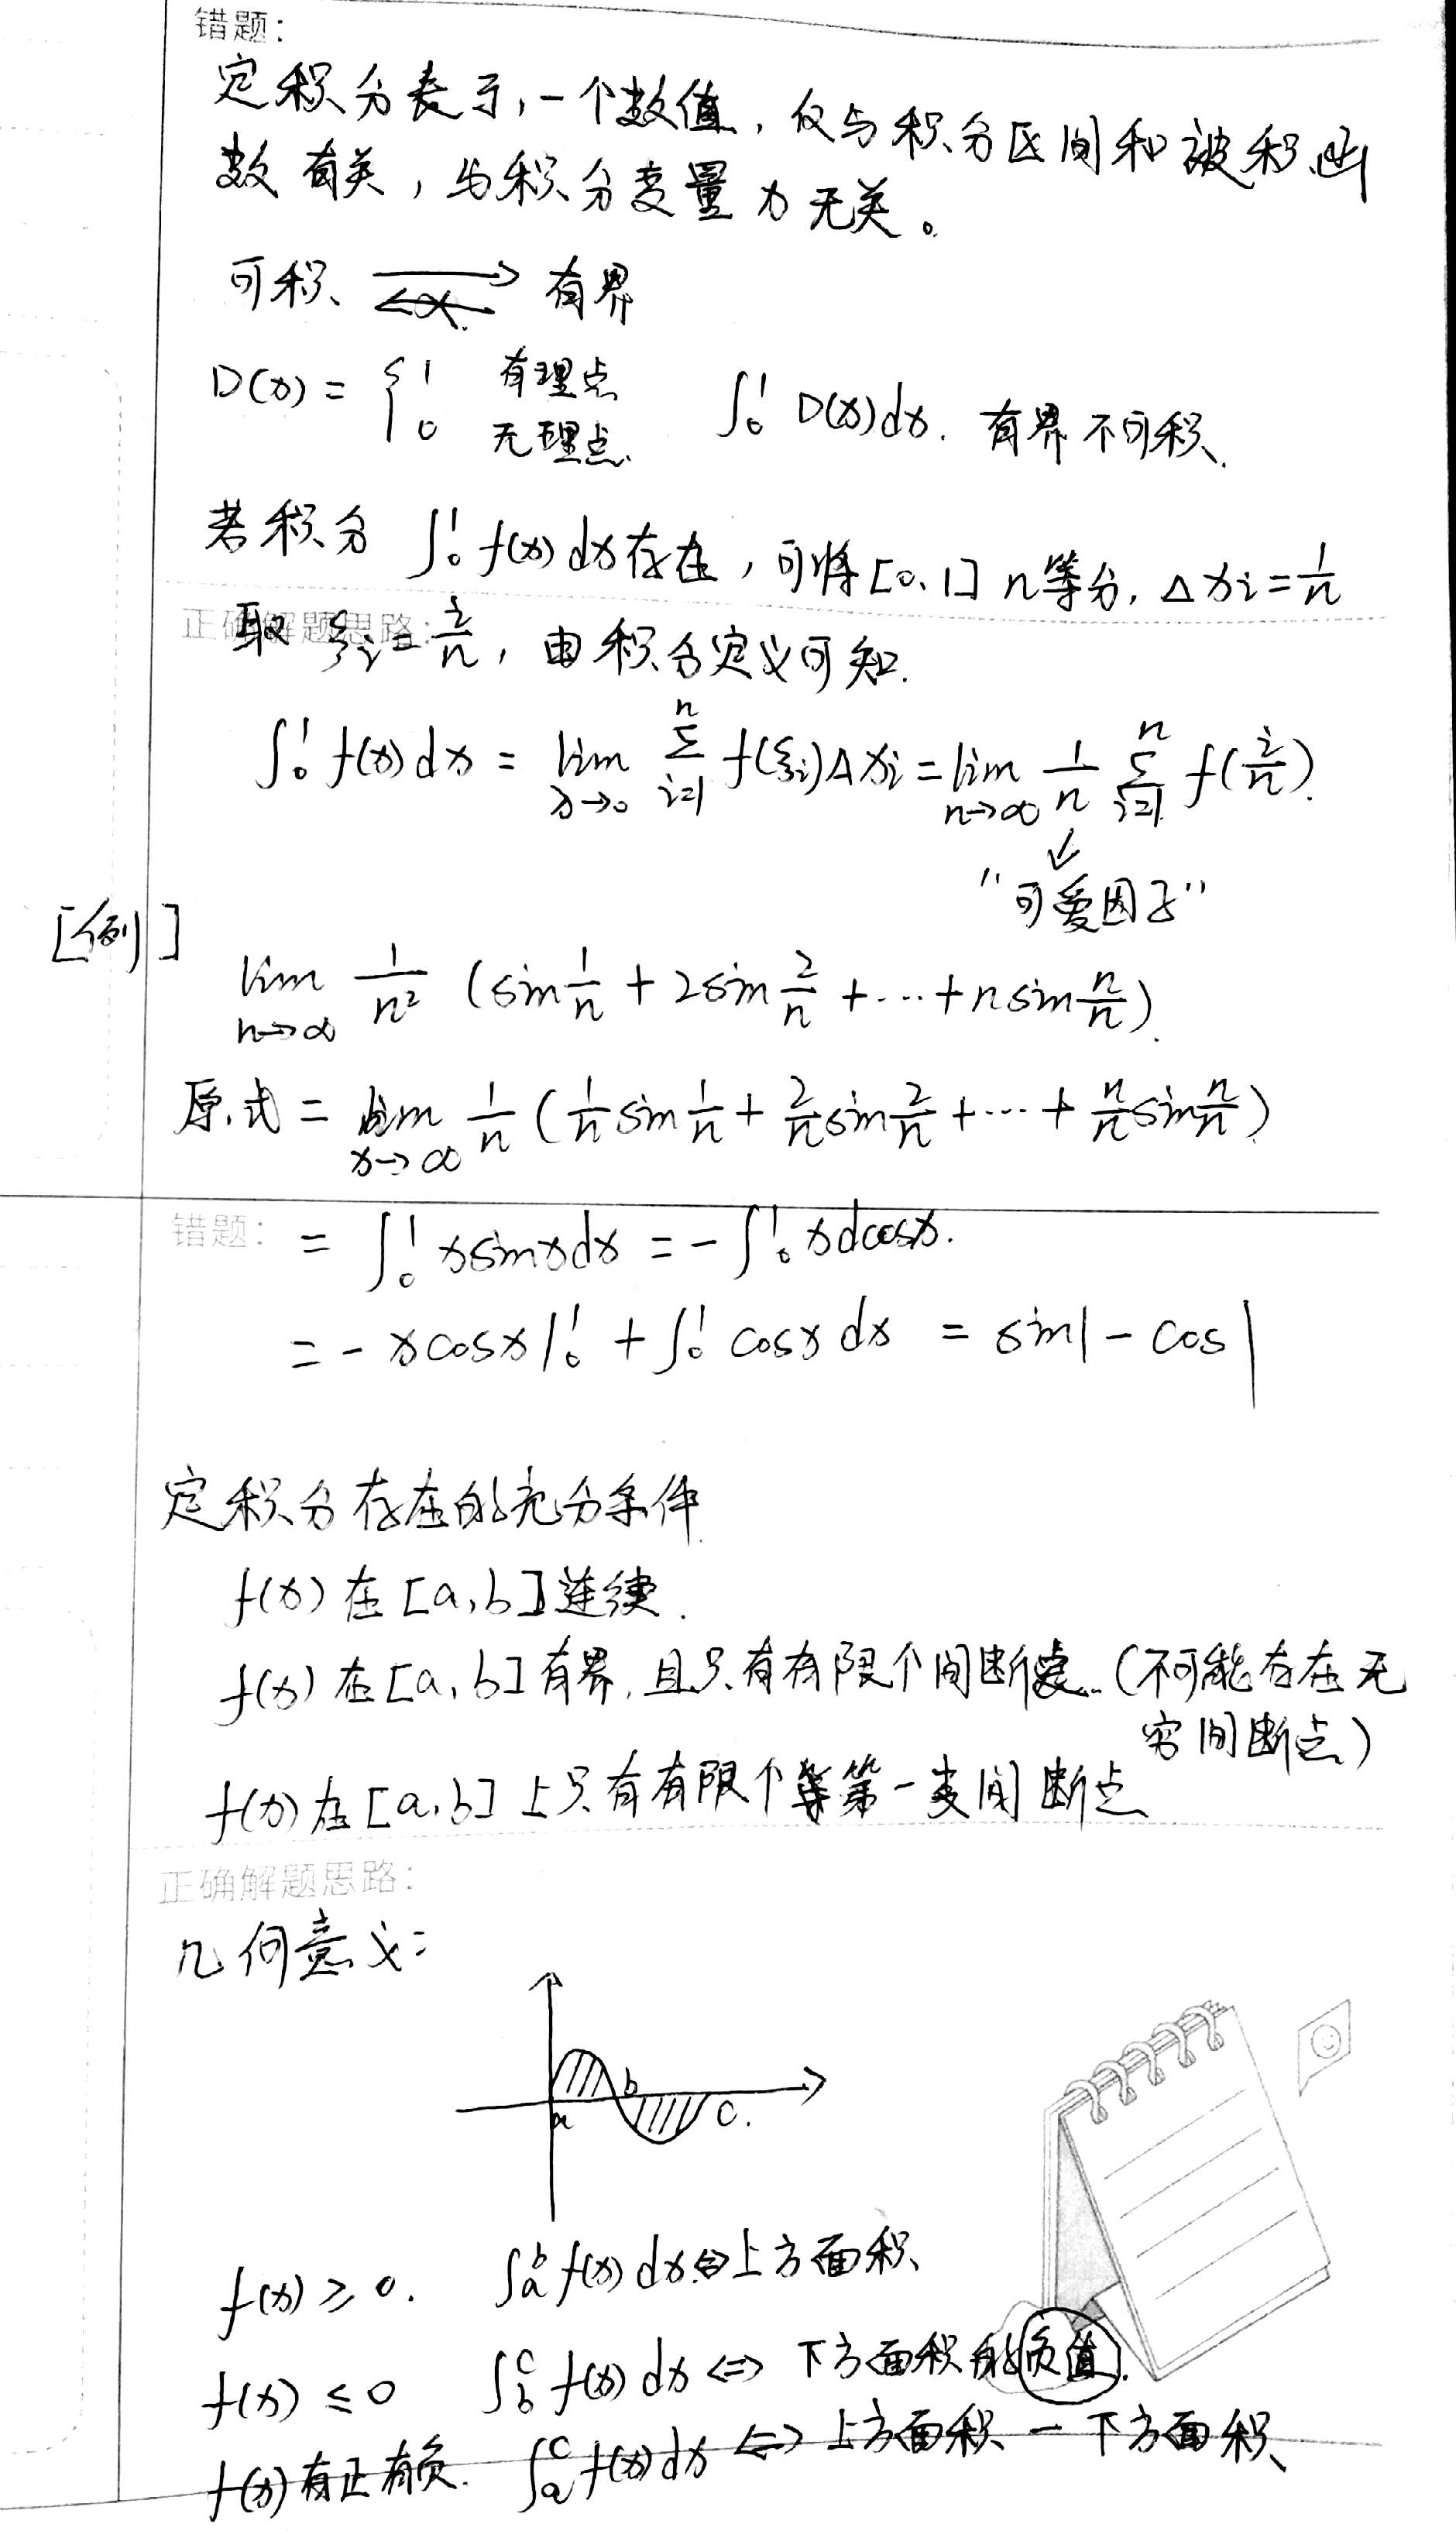 错题:
定积分表示,一个数值,仅与积分区间和被积函
数有关,与积分变量x无关。
可积 ⟶ 有界
D(x) = { 1 有理点
0 无理点. ∫₀¹ D(x)dx. 有界不可积.
若积分 ∫₀¹ f(x)dx存在,可将[0,1] n等分, Δxi = 1/n
正确解题思路:
取 ξi = i/n, 由积分定义可知.
∫₀¹ f(x)dx = lim λ→0 Σ i=1 n f(ξi)Δxi = lim n→∞ 1/n Σ i=1 n f(i/n).
↙
"可爱因子"
[例]
lim n→∞ 1/n² (sin 1/n + 2sin 2/n + ... + n sin n/n).
原式 = lim x→∞ 1/n (1/n sin 1/n + 2/n sin 2/n + ... + n/n sin n/n)
错题: = ∫₀¹ x sinx dx = - ∫₀¹ x dcosx.
= - x cosx |₀¹ + ∫₀¹ cosx dx = sin1 - cos1
定积分存在的充分条件
f(x) 在 [a,b] 连续.
f(x) 在 [a,b] 有界, 且只有有限个间断点.(不可能存在无
穷间断点)
f(x) 在 [a,b] 上只有有限个第一类间断点
正确解题思路:
几何意义:
b
a
c.
f(x) ≥ 0. ∫ₐᵇ f(x)dx ⇔ 上方面积
f(x) ≤ 0 ∫_b^c f(x)dx ⇔ 下方面积的负值.
f(x)有正有负. ∫_a^c f(x)dx ⇔ 上方面积 - 下方面积